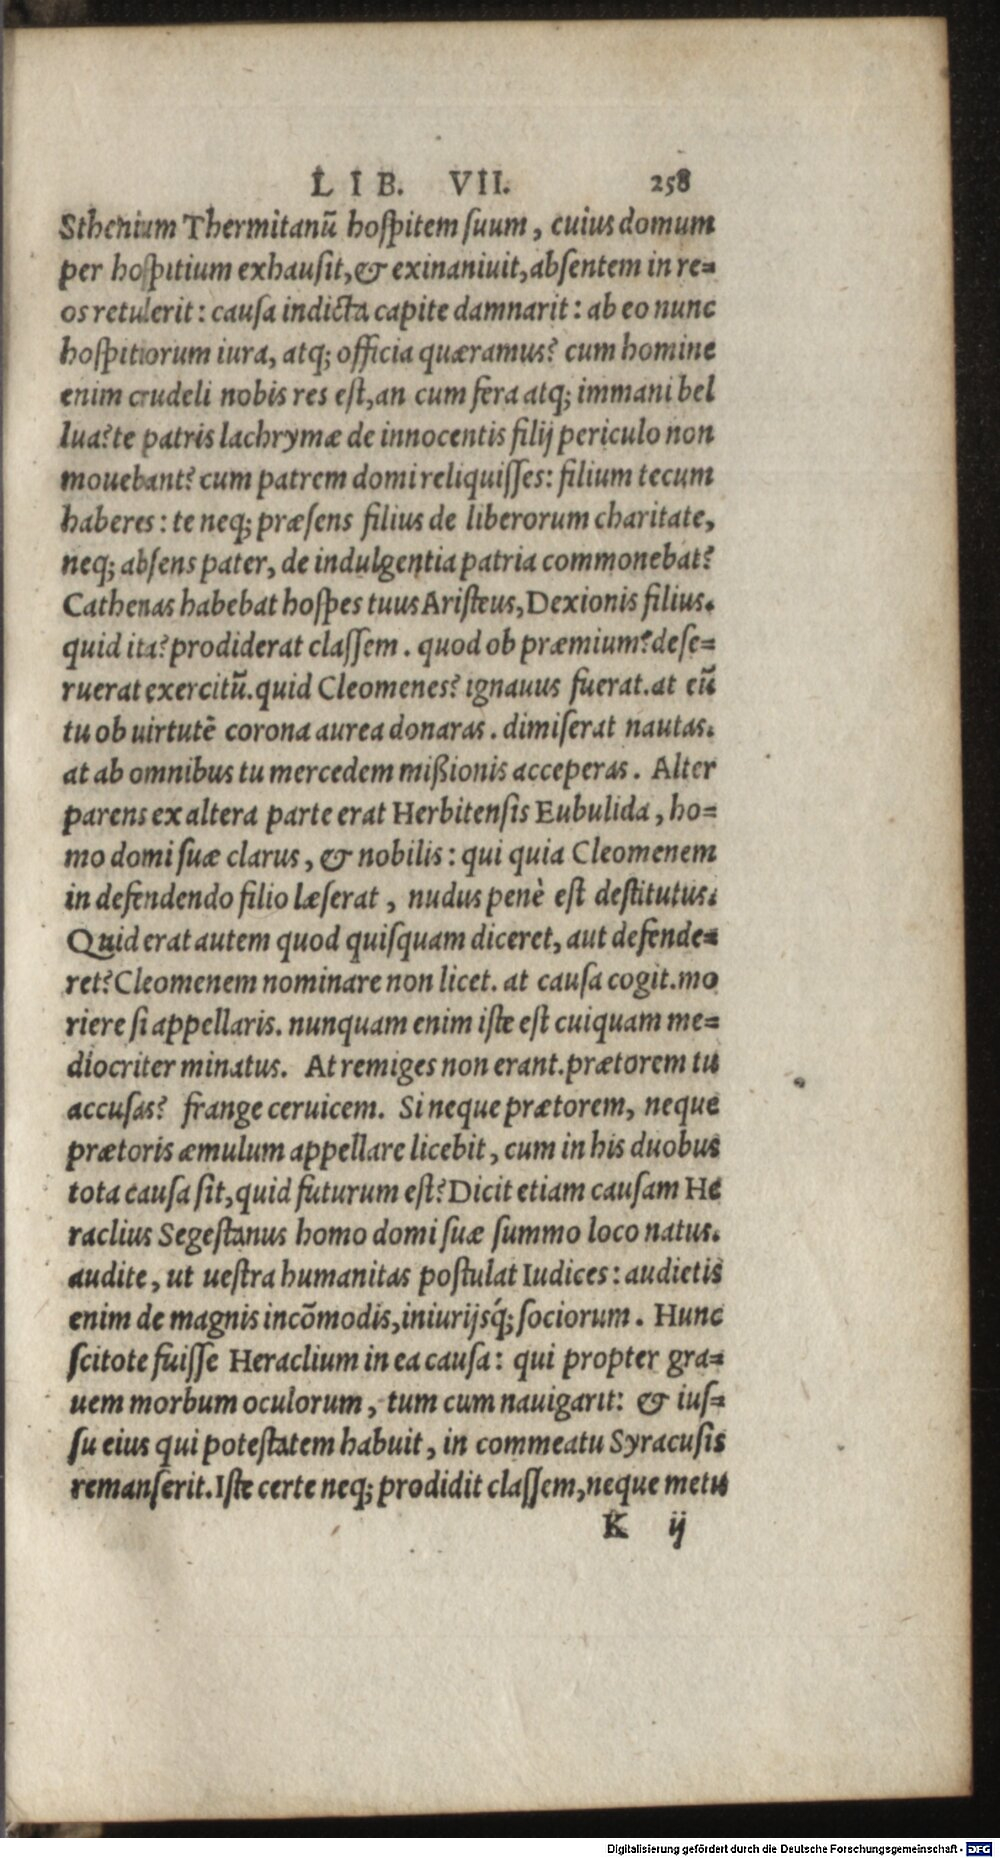 LIB. VII. 258
Sthenium Thermitanū hoſpitem ſuum, cuius domum
per hoſpitium exhauſit, & exinaniuit, abſentem in re=
os retulerit: cauſa indicta capite damnarit: ab eo nunc
hoſpitiorum iura, atq; officia quæramus? cum homine
enim crudeli nobis res eſt, an cum fera atq; immani bel
lua? te patris lachrymæ de innocentis filij periculo non
mouebant? cum patrem domi reliquiſſes: filium tecum
haberes: te neq; præſens filius de liberorum charitate,
neq; abſens pater, de indulgentia patria commonebat?
Cathenas habebat hoſpes tuus Ariſteus, Dexionis filius.
quid ita? prodiderat claſſem. quod ob præmium? deſe=
ruerat exercitū. quid Cleomenes? ignauus fuerat. at eū
tu ob uirtutē corona aurea donaras. dimiſerat nautas.
at ab omnibus tu mercedem mißionis acceperas. Alter
parens ex altera parte erat Herbitenſis Eubulida, ho=
mo domi ſuæ clarus, & nobilis: qui quia Cleomenem
in defendendo filio læſerat, nudus penè eſt deſtitutus.
Quid erat autem quod quiſquam diceret, aut defende=
ret? Cleomenem nominare non licet. at cauſa cogit. mo
riere ſi appellaris. nunquam enim iſte eſt cuiquam me=
diocriter minatus. At remiges non erant. prætorem tu
accuſas? frange ceruicem. Si neque prætorem, neque
prætoris æmulum appellare licebit, cum in his duobus
tota cauſa ſit, quid futurum eſt? Dicit etiam cauſam He
raclius Segeſtanus homo domi ſuæ ſummo loco natus.
audite, ut ueſtra humanitas poſtulat Iudices: audietis
enim de magnis incōmodis, iniurijsq́; ſociorum. Hunc
ſcitote fuiſſe Heraclium in ea cauſa: qui propter gra=
uem morbum oculorum, tum cum nauigarit: & iuſ=
ſu eius qui poteſtatem habuit, in commeatu Syracuſis
remanſerit. Iſte certe neq; prodidit claſſem, neque metu
K ij
Digitalisierung gefördert durch die Deutsche Forschungsgemeinschaft - DFG